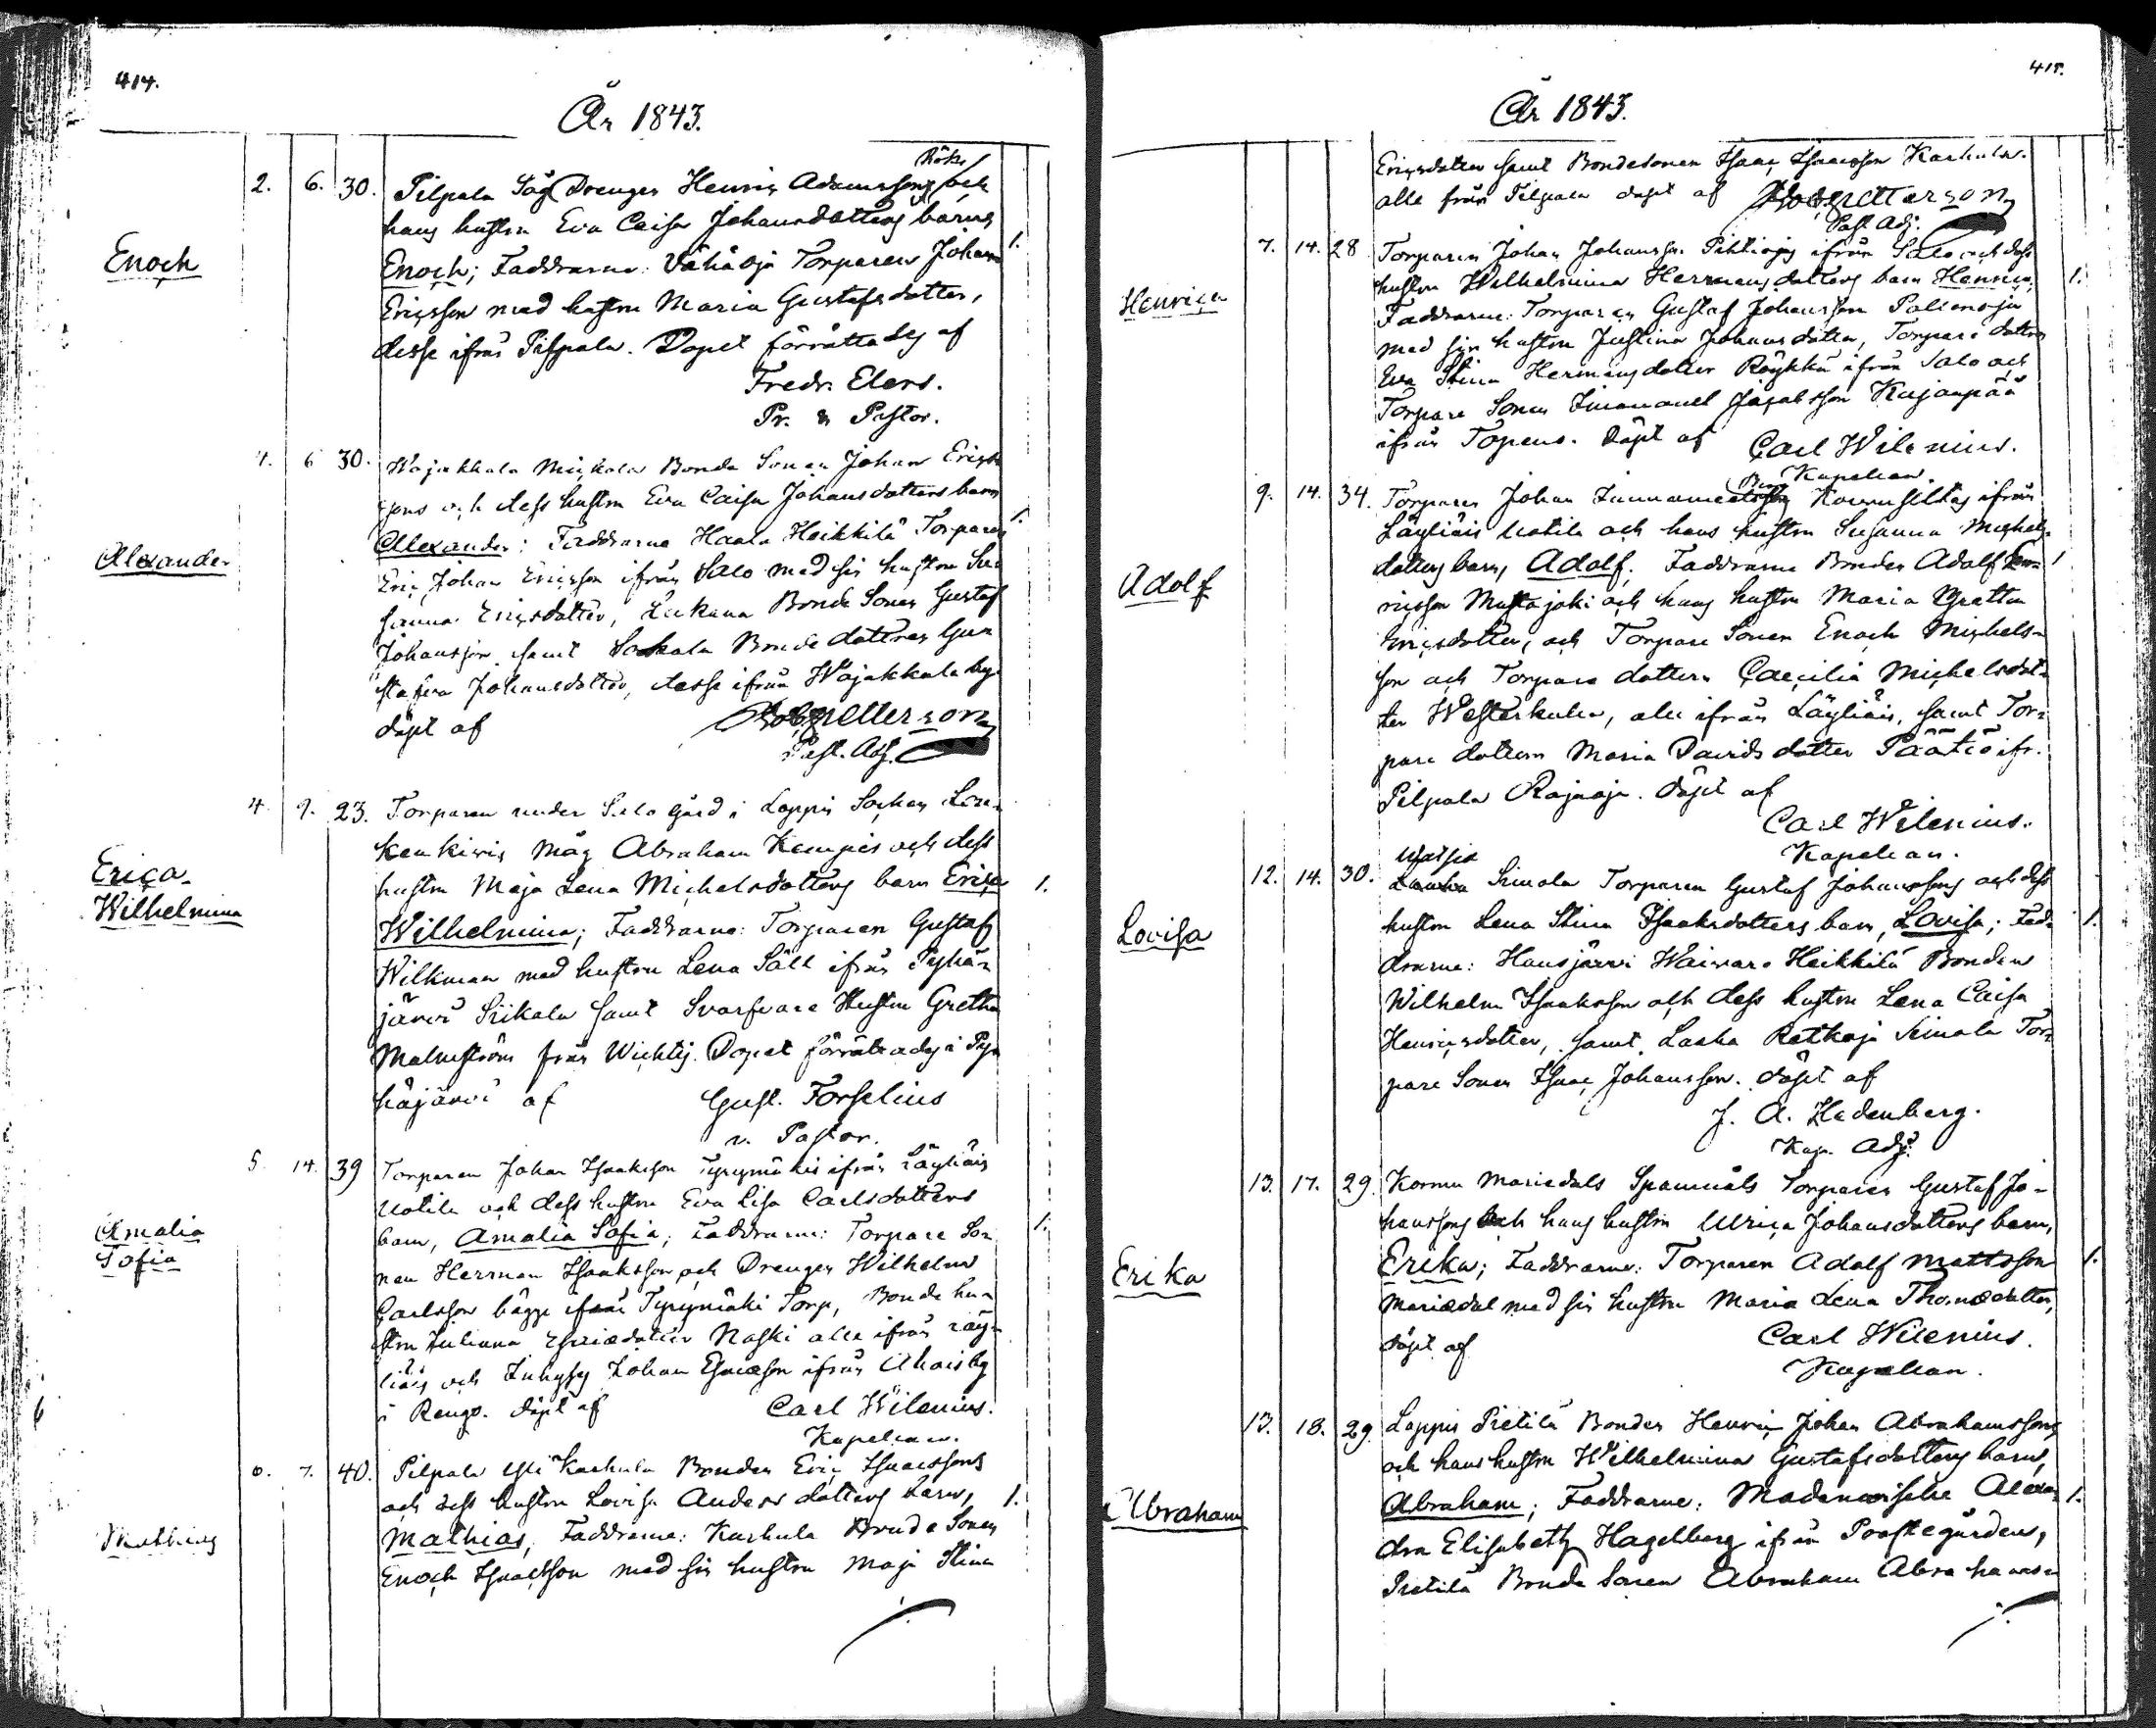 414.
År 1843.
Rök
2. 6. 30. Pilpala Såg Drengen Henric Adamssons och
hans hustru Eva Caisa Johansdotters barn
Enoch
Enoch; Faddrarne: Vähäoja Torparen Johan 1.
Ericsson med hustru Maria Gustafsdotter,
desse ifrån Pilpala. Dopet förrättades af
Fredr. Elers.
Pr. & Pastor.
4. 6 30. Wojakkala Mickola Bonde Sonen Johan Erics-
sons och dess hustru Eva Caisa Johansdotters barn
Alexander
Alexander; Faddrarne Haala Heikkilä Torparen 1.
Eric Johan Ericsson ifrån Salo med sin hustru Su-
sanna Ericsdotter, Bonde Sonen Gustaf
Johansson samt Bonde dottren Gu-
stafva Johansdotter, desse ifrån Wojakkala by
döpt af Rob. Petterson
Past. Adj.
4. 9. 23. Torparen under Salo gård i Loppis Sochen
Måg Abraham Kempes och dess
Erica
Wilhelmina
hustru Maja Lena Michelsdotters barn Erica 1.
Wilhelmina; Faddrarne: Torparen Gustaf
Wilkman med hustru Lena Säll ifrån Pyhä-
järvi Siikala samt Svarfvare Hustru Gretha
Malmström från Wichtis. Dopet förrättades i Py-
häjärvi af Gust. Forselius
v. Pastor.
5. 14. 39 Torparen Johan Isaksson Tyrymäkis ifrån Läyliäis
Uotila och dess hustru Eva Lisa Carlsdotters
Amalia
Sofia
barn, Amalia Sofia; Faddrarne: Torpare So- 1.
nen Herman Isaksson och Drengen Wilhelm
Carlsson bägge ifrån Tyrymäki Torp, Bonde hu-
stru Juliana Naski alle ifrån Läy-
liäis och Johan ifrån Ahoisby
i Rengo. döpt af Carl Wilenius.
Kapelian.
6. 7. 40. Pilpala Yli Karhula Bonden Eric Isacssons
och dess hustru Lovisa Anders dotters barn, 1.
Mathias
Mathias, Faddrarne: Karhula Bonde Sonen
Enoch Isacsson med sin hustru Maja Stina
415.
År 1843.
Ericsdotter samt Bondesonen Isaac Isaacsson Karhula.
alle från Pilpala döpt af Rob. Petterson
Past. Adj.
7. 14. 28 Torparen Johan Johansson Pihtiojas ifrån Salo och dess
Henrica
hustru Wilhelmina Hermansdotters barn Henrica, 1.
Faddrarne: Torparen Gustaf Johansson
med sin hustru Justina Johansdotter, Torpare dottren
Eva Stina Hermansdotter Röykkä ifrån Salo och
Torpare Sonen Immanuel Jacobsson Kujanpää
ifrån Topeno. Döpt af Carl Wilenius.
Kapelian.
9. 14. 34. Torparen Johan ifrån
Läyliäis Uotila och hans hustru Susanna Michels-
Adolf
dotters barn, Adolf. Faddrarne Bonden Adolf Hen- 1
ricsson Mustajoki och hans hustru Maria Gretha
Ericsdotter, och Torpare Sonen Enoch Michels-
son och Torpare dottern Caecilia Michelsdot-
ter Westerkulla, alle ifrån Läyliäis, samt Tor-
pare dottern Maria Davidsdotter Päätiö ifr.
Pilpala Rajaoja. döpt af
Carl Wilenius.
Kapelian.
12. 14. 30. Simola Torparen Gustaf Johanssons och dess
Lovisa
hustru Lena Stina Isaksdotters barn, Lovisa; Fad- 1.
drarne: Hausjärvi Waiwaro Heikkilä Bonden
Wilhelm Isaksson och dess hustru Lena Caisa
Henricsdotter, samt Lasha Ratkoja Simola Tor-
pare Sonen Isaac Johansson. döpt af
J. A. Hedenberg.
Kap. Adj.
13. 17. 29. Kormu Mariedals Torparen Gustaf Jo-
hanssons och hans hustru Ulrica Johansdotters barn,
Erika
Erika; Faddrarne: Torparen Adolf Mattsson 1.
Mariedal med sin hustru Maria Lena Thomædotter,
döpt af Carl Wilenius.
Kapelian.
13. 18. 29. Loppis Pietilä Bonden Henric Johan Abrahamssons
och hans hustru Wilhelmina Gustafsdotters barn,
Abraham
Abraham; Faddrarne: Mademoiselle Alexan- 1.
dra Elisabeth Hagelberg ifrån Prostegården,
Pietilä Bonde Sonen Abraham Abrahams-